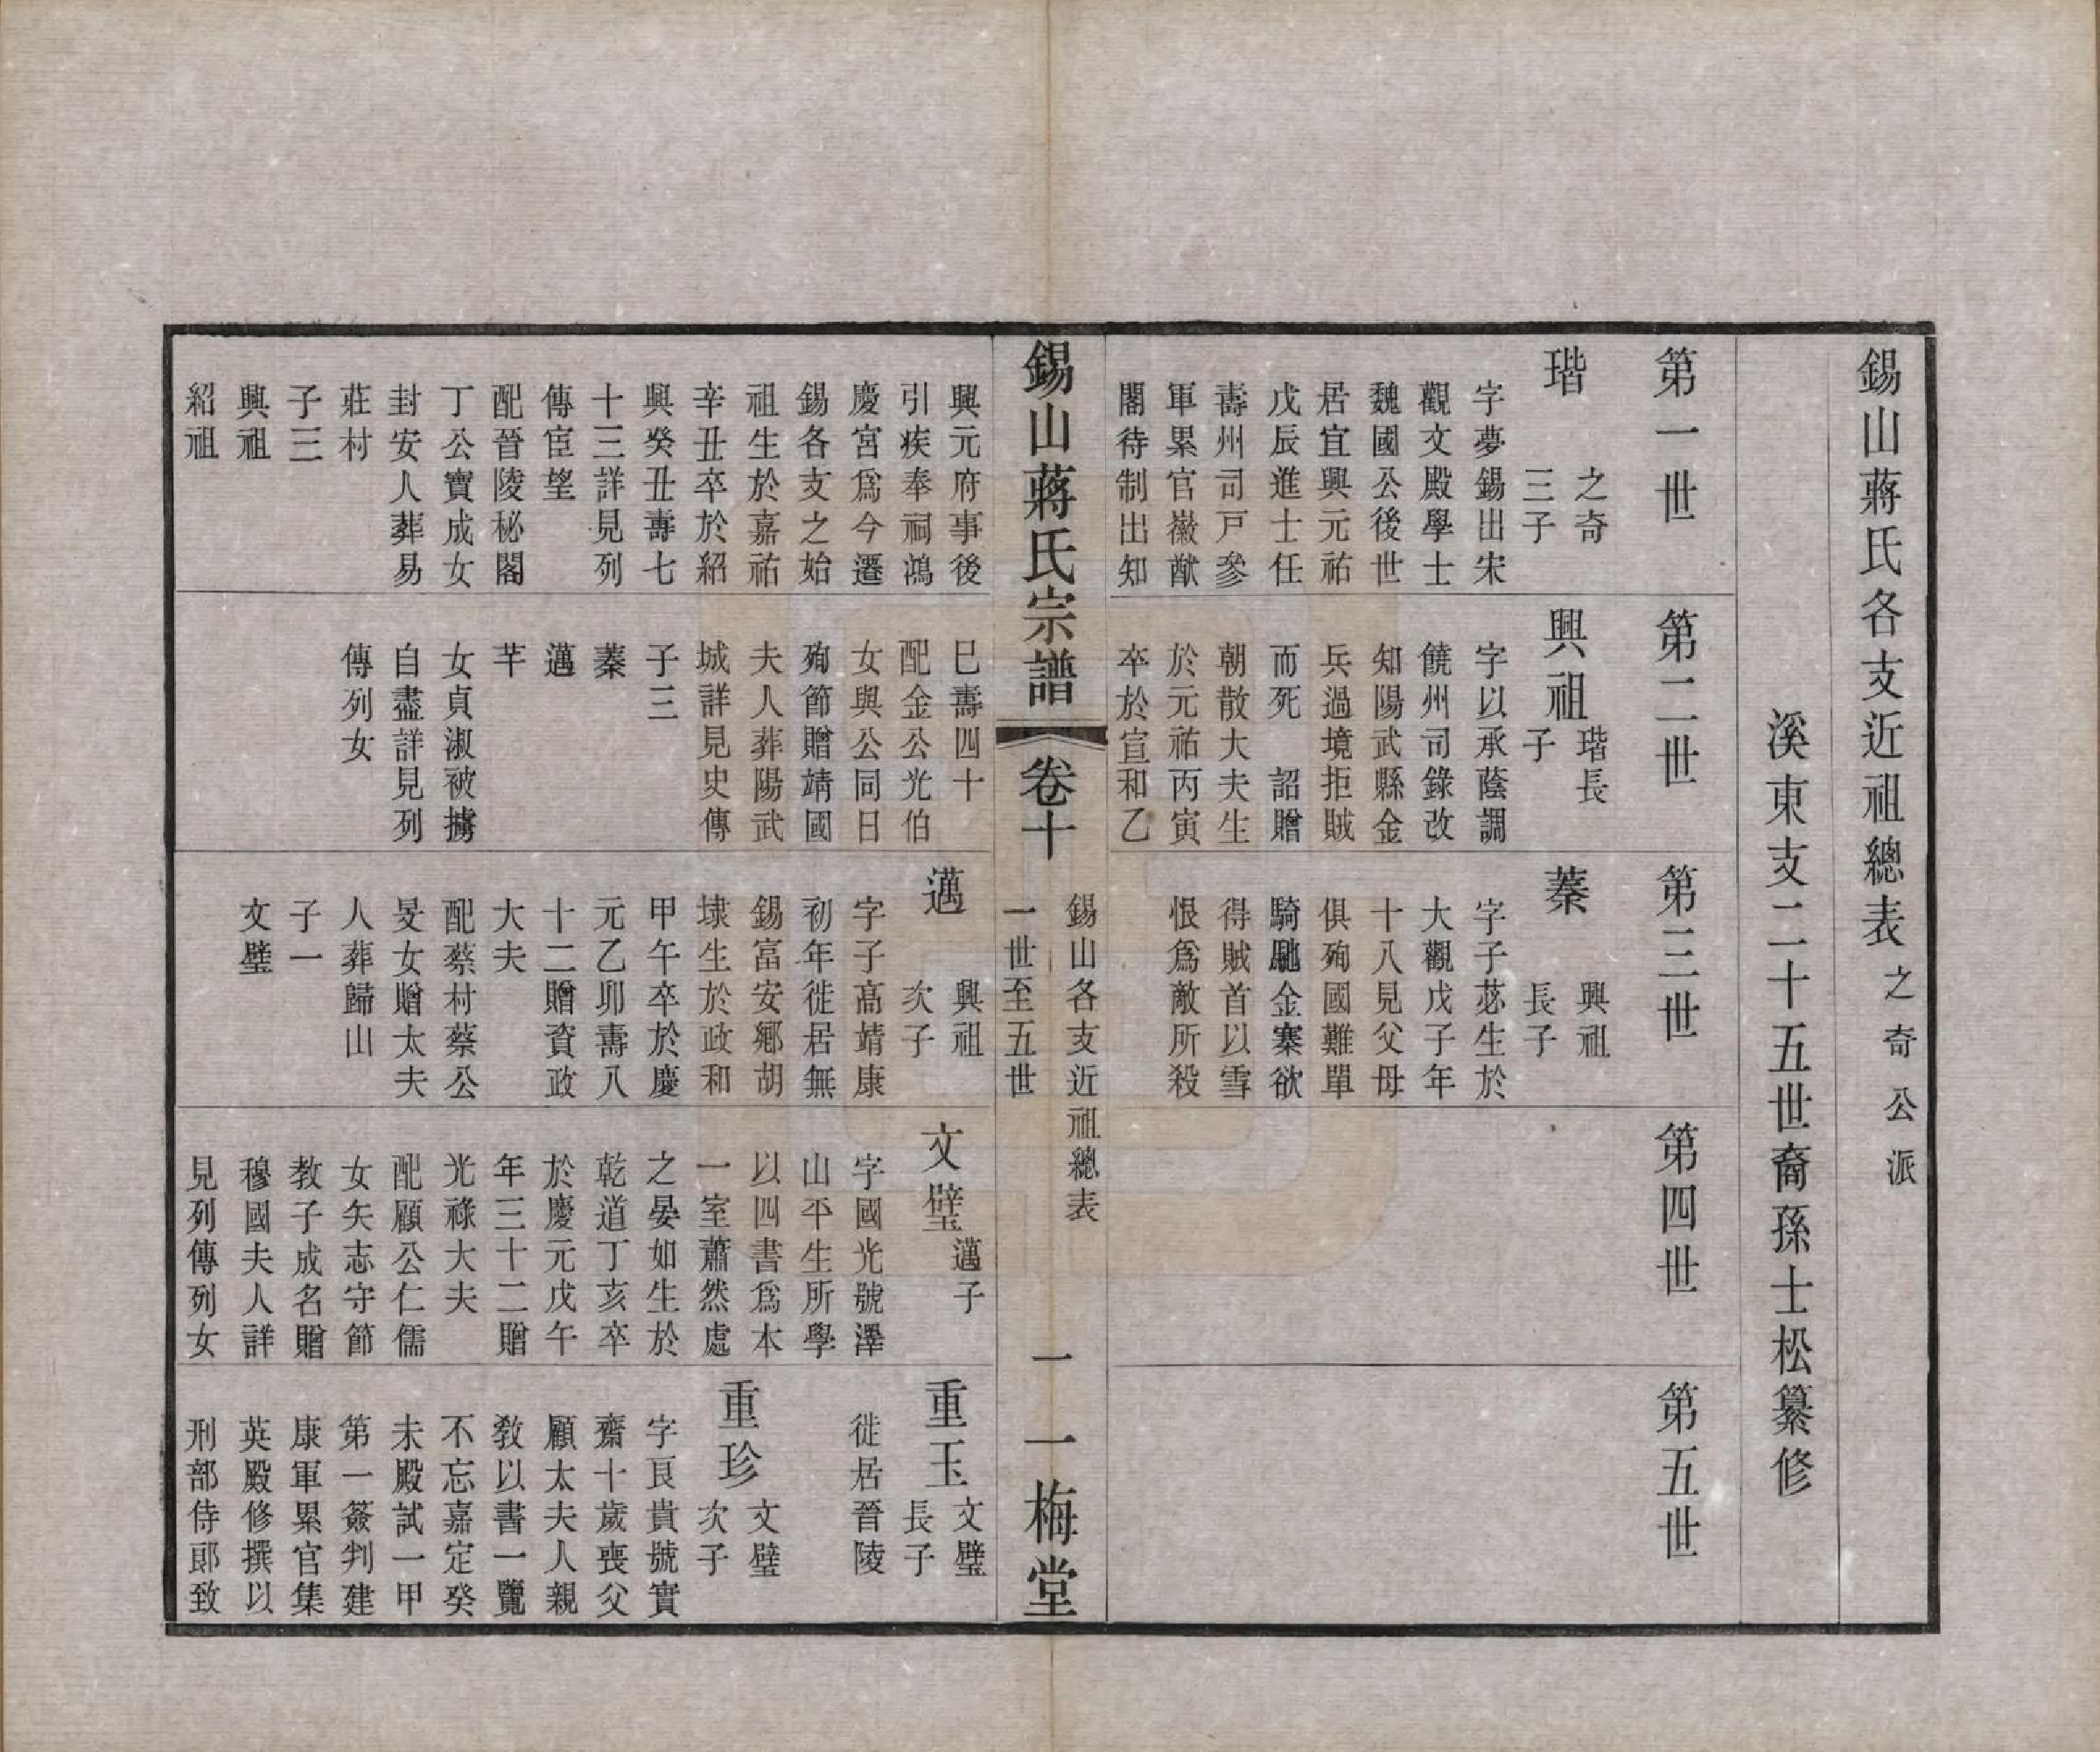 錫山蔣氏各支近祖總表之奇公派
溪東支二十五世裔孫士松纂修
第一世
瑎
之奇
三子
字夢錫出宋
觀文殿學士
魏國公後世
居宜興元祐
戊辰進士任
壽州司戸參
軍累官徽猷
閣待制出知
第二世
興祖
瑎長
子
字以承蔭調
饒州司錄改
知陽武縣金
兵過境拒賊
而死 詔贈
朝散大夫生
於元祐丙寅
卒於宣和乙
第三世
蓁
興祖
長子
字子苾生於
大觀戊子年
十八見父母
俱殉國難單
騎馳金寨欲
得賊首以雪
恨爲敵所殺
第四世
第五世
錫山蔣氏宗譜
卷十
錫山各支近祖總表
一世至五世
一
一梅堂
興元府事後
引疾奉祠鴻
慶宮爲今遷
錫各支之始
祖生於嘉祐
辛丑卒於紹
興癸丑壽七
十三詳見列
傳宦望
配晉陵秘閣
丁公寶成女
封安人葬易
莊村
子三
興祖
紹祖
巳壽四十
配金公光伯
女與公同日
殉節贈靖國
夫人葬陽武
城詳見史傳
子三
蓁
邁
芊
女貞淑被擄
自盡詳見列
傳列女
邁
興祖
次子
字子高靖康
初年徙居無
錫富安鄉胡
埭生於政和
甲午卒於慶
元乙卯壽八
十二贈資政
大夫
配蔡村蔡公
旻女贈太夫
人葬歸山
子一
文璧
文璧
邁子
字國光號澤
山平生所學
以四書爲本
一室蕭然處
之晏如生於
乾道丁亥卒
於慶元戊午
年三十二贈
光祿大夫
配顧公仁儒
女矢志守節
教子成名贈
穆國夫人詳
見列傳列女
重玉
文璧
長子
徙居晉陵
重珍
文璧
次子
字良貴號實
齋十歲喪父
顧太夫人親
敎以書一覽
不忘嘉定癸
未殿試一甲
第一簽判建
康軍累官集
英殿修撰以
刑部侍郎致